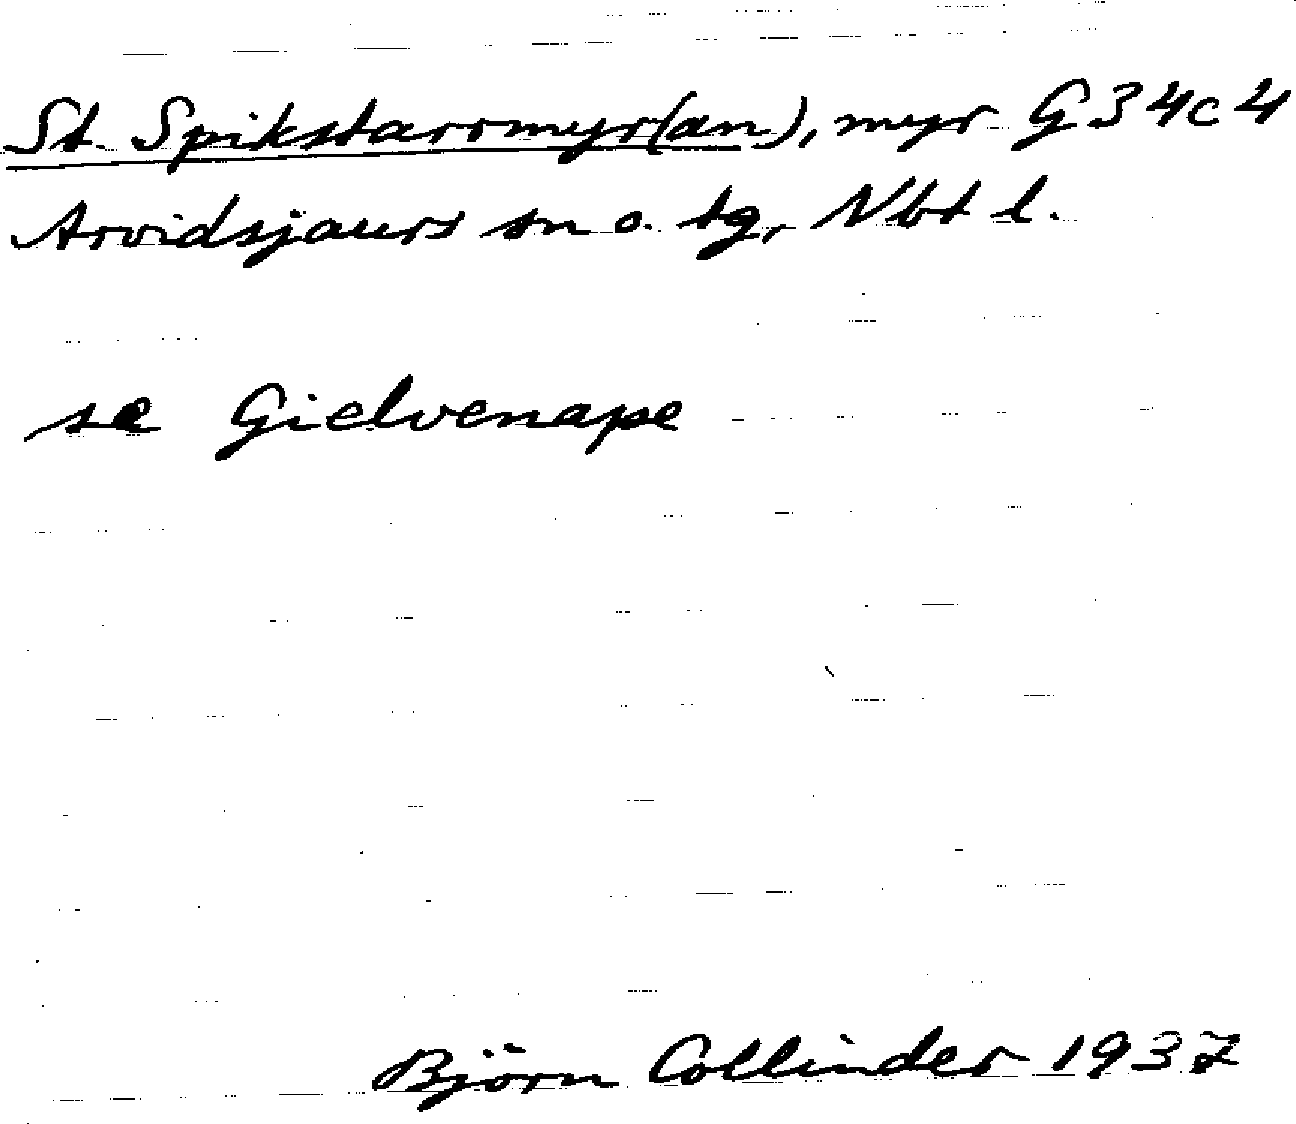 St. Spikstarrmyr(an), myr G34c4
Arvidsjaurs sn o. tg, Nbt l.
se Gielvenape
Björn Collinder 1937